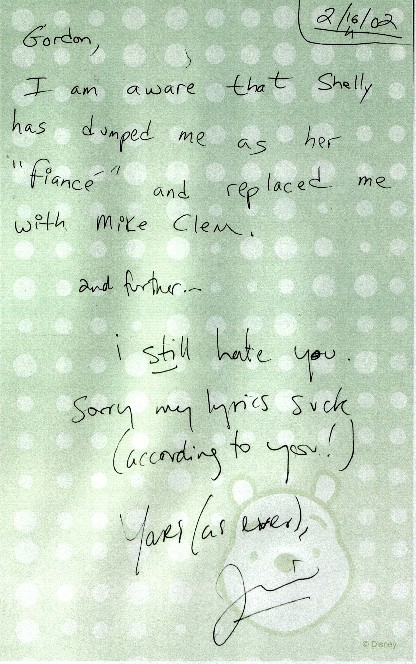 2/16/02
Gordon,
I am aware that Shelly
has dumped me as her
"fiancé" and replaced me
with Mike Clem.
and further...
i still hate you.
Sorry my lyrics suck
(according to you!)
Yours (as ever),
© Disney